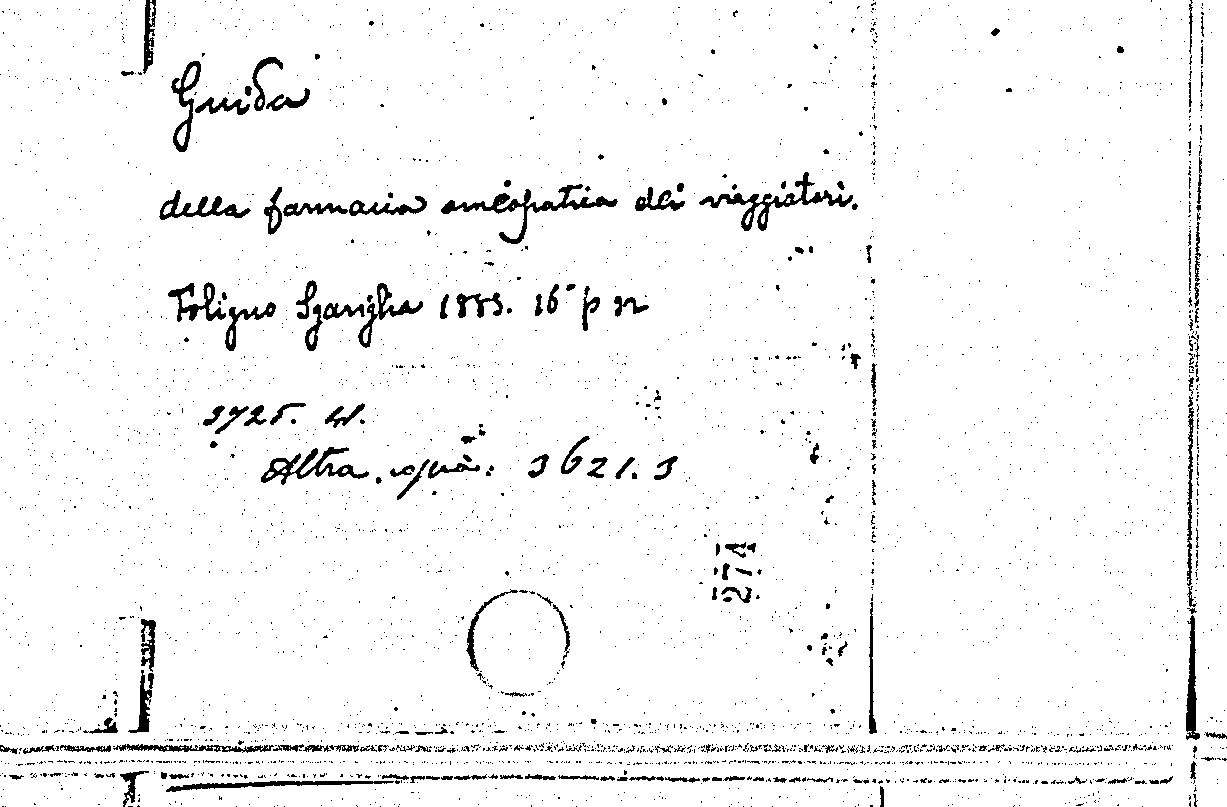 Guida
della farmacia omeopatica dei viaggiatori.
Foligno Sgariglia 1883. 16° p
3725. 41.
Altra copia. 3621.3
274